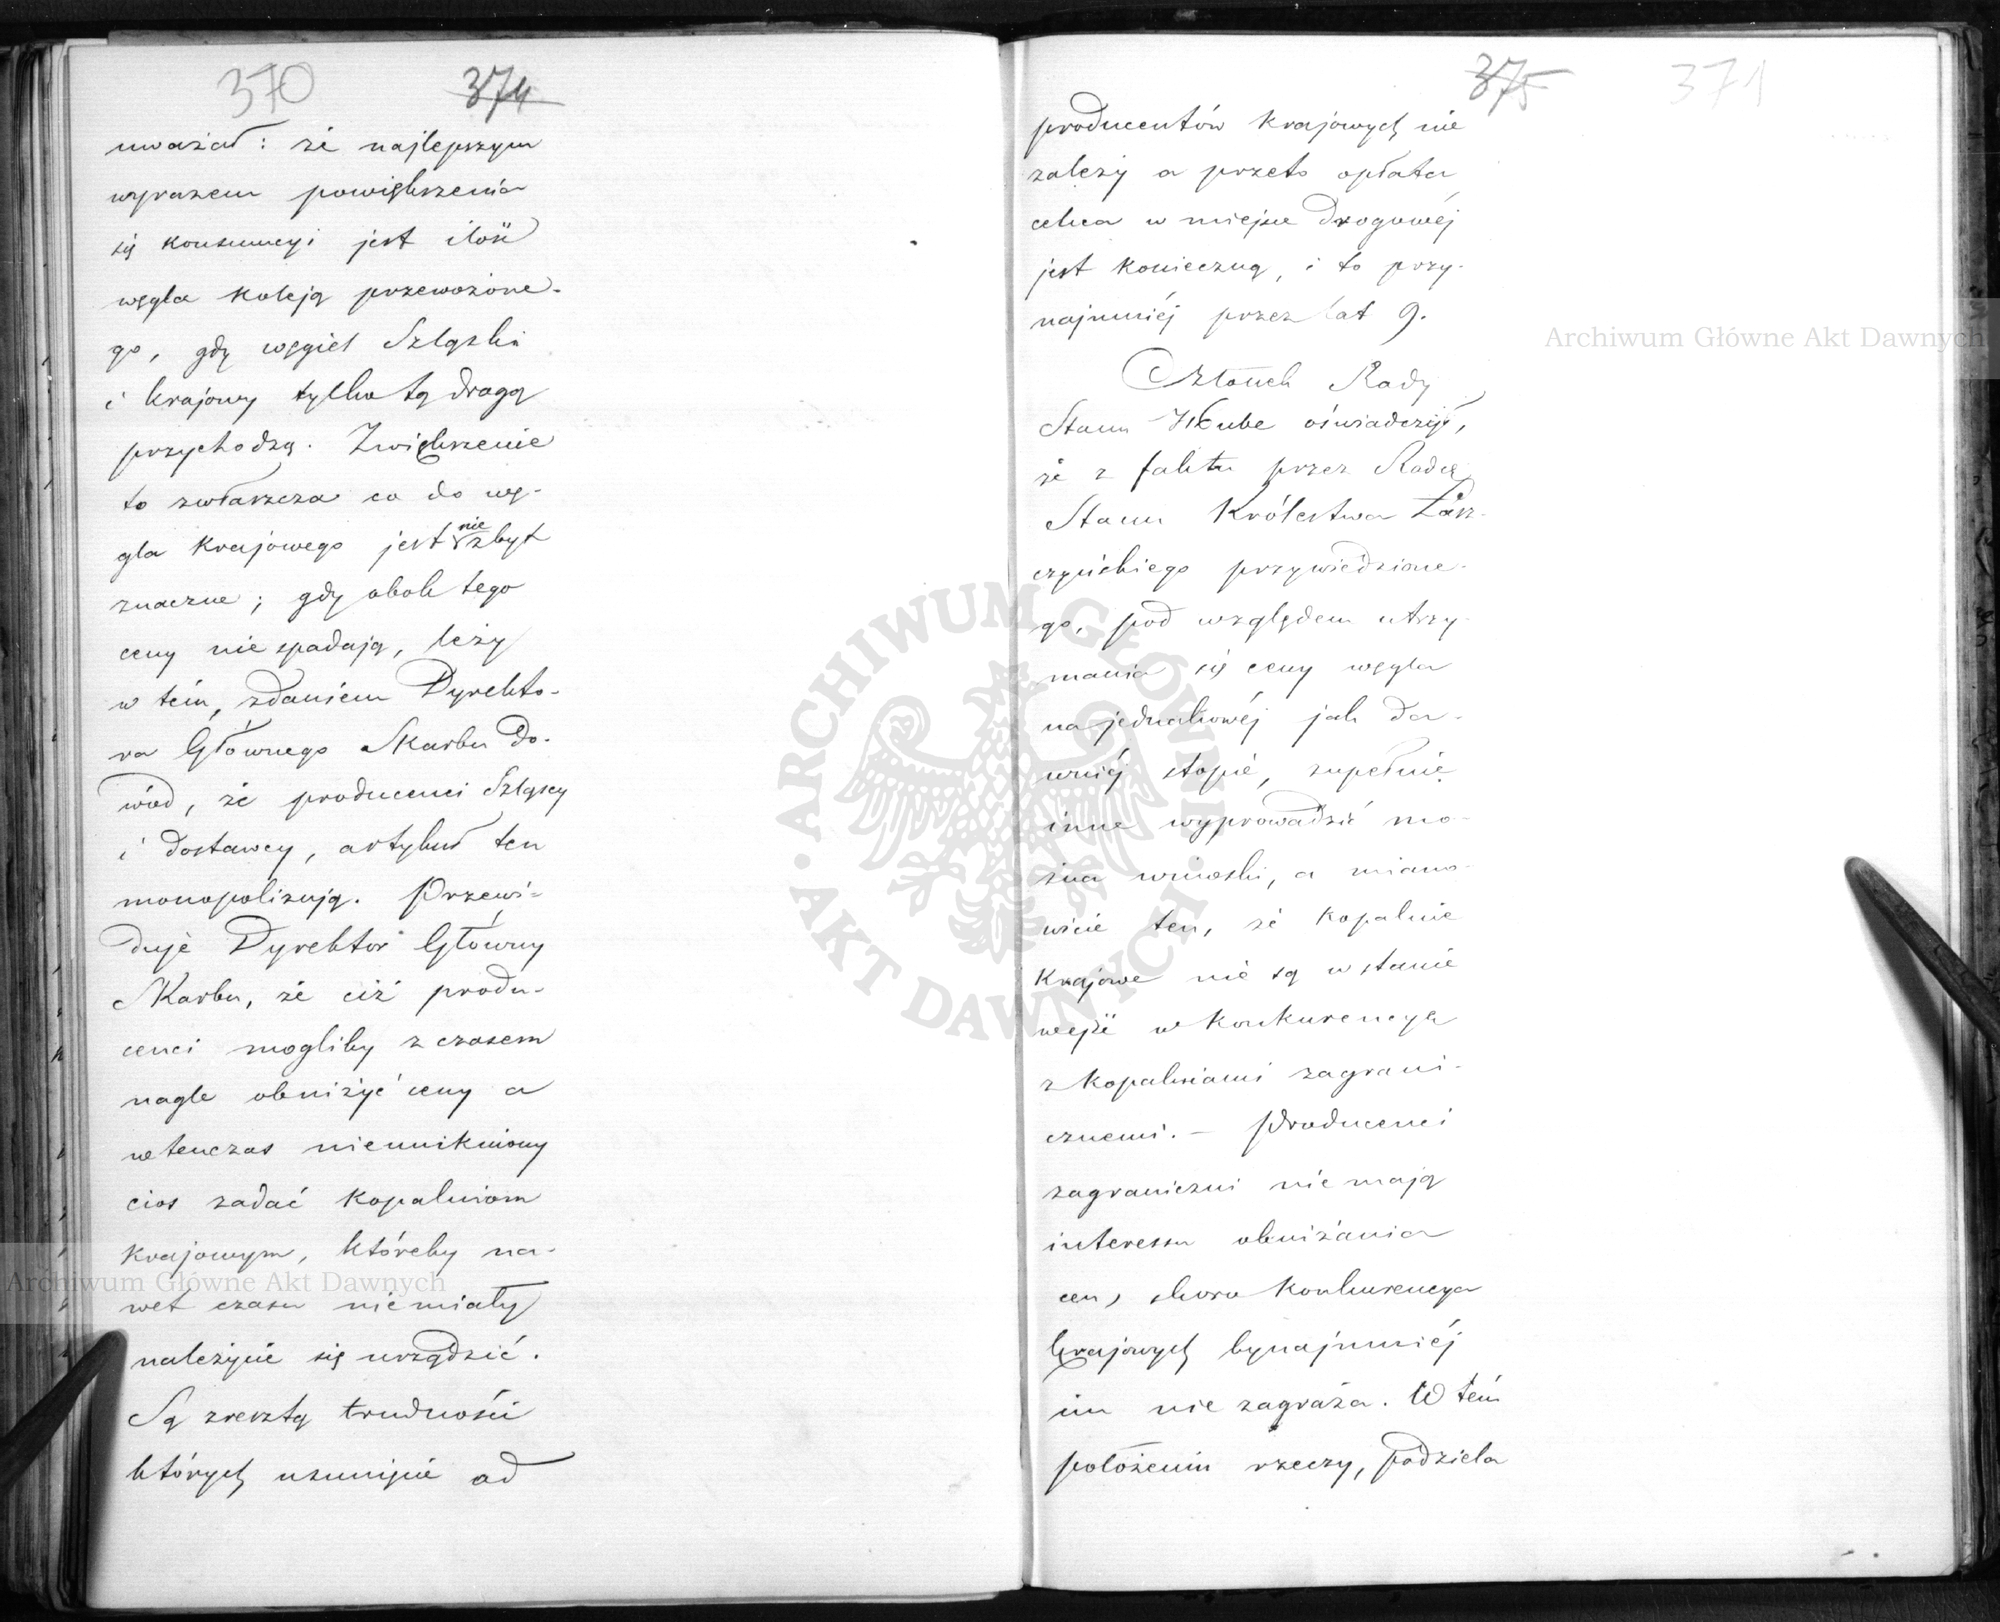 370 374
uważał: że najlepszym
wyrazem powiększenia
się konsumcyi jest ilość
węgla koleją przewożone-
go, gdy węgiel Szląski
i krajowy tylko tą drogą
przychodzą. Zwiększenie
to zwłaszcza co do wę-
gla krajowego jest nie zbyt
znaczne; gdy obok tego
ceny nie spadają, leży
w tém, zdaniem Dyrekto-
ra Głównego Skarbu do-
wód, że producenci Szląscy
i dostawcy, artykuł ten
monopolizują. Przewi-
duje Dyrektor Główny
Skarbu, że ciż produ-
cenci mogliby z czasem
nagle obniżyć ceny a
wtenczas nieunikniony
cios zadać kopalniom
krajowym, któreby na-
wet czasu nie miały
należycie się urządzić.
Są zresztą trudności
których usunięcie od
375 371
producentów krajowych nie
zależy a przeto opłata
celna w miejsce drogowéj
jest konieczną, i to przy-
najmniéj przez lat 9.
Członek Rady
Stanu Hube oświadczył,
że z faktu przez Radcę
Stanu Królestwa Łasz-
czyńskiego przywiedzione-
go, pod względem utrzy-
mania się ceny węgla
na jednakowéj jak da-
wniéj stopie, zupełnie
inne wyprowadzić mo-
żna wnioski, a miano-
wicie ten, że kopalnie
Krajowe nie są w stanie
wejść w konkurencyą
z kopalniami zagrani-
cznemi. – Producenci
zagraniczni nie mają
interessu obniżania
cen, skoro konkurencya
krajowych bynajmniéj
im nie zagraża. W tém
położeniu rzeczy, podziela
Archiwum Główne Akt Dawnych
Archiwum Główne Akt Dawnych
ARCHIWUM GŁÓWNE · AKT DAWNYCH ·